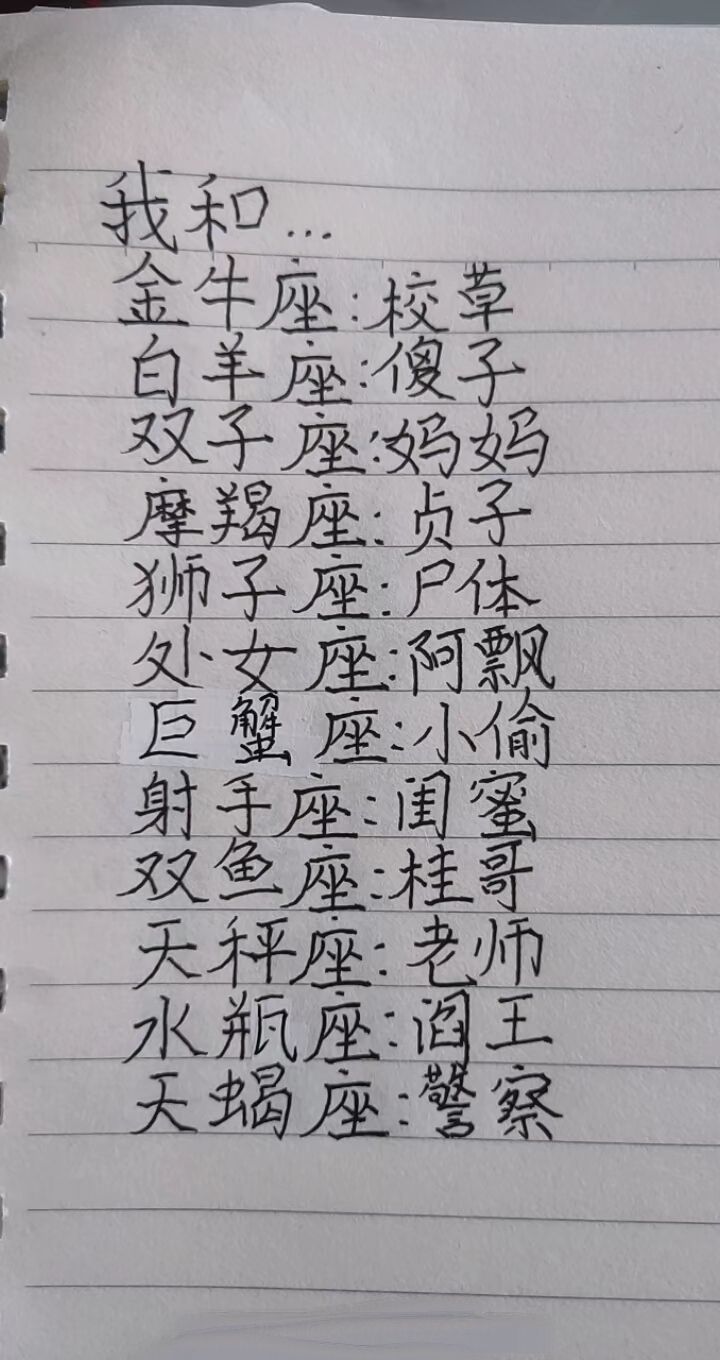 我和...
金牛座:校草
白羊座:傻子
双子座:妈妈
摩羯座:贞子
狮子座:尸体
处女座:阿飘
巨蟹座:小偷
射手座:闺蜜
双鱼座:桂哥
天秤座:老师
水瓶座:阎王
天蝎座:警察